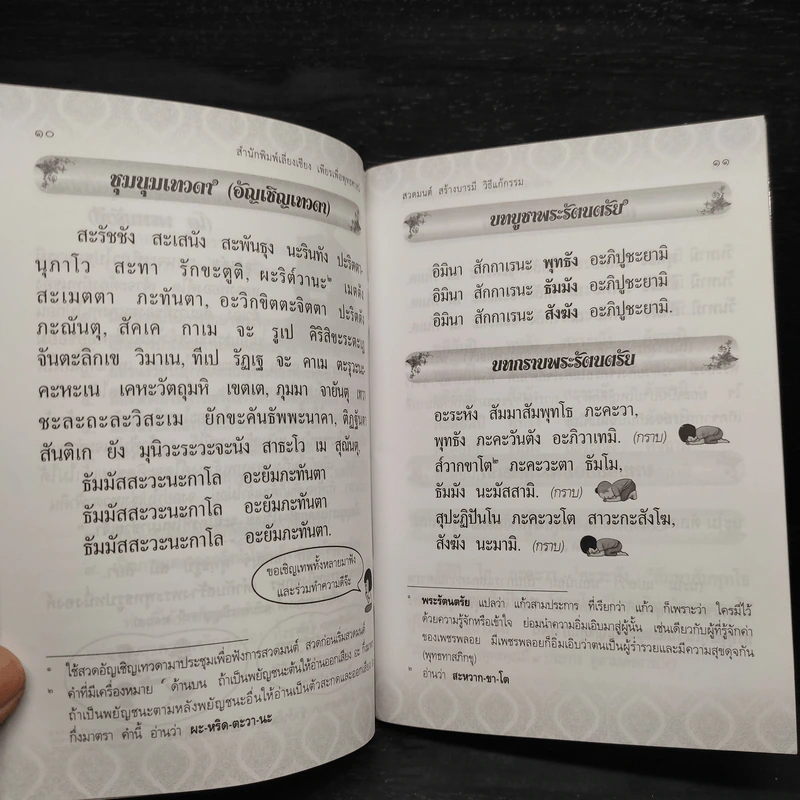 ๑๐
สำนักพิมพ์เลี่ยงเชียง เพียรเพื่อพุทธศาสน์
ชุมนุมเทวดา๑ (อัญเชิญเทวดา)
สะรัชชัง สะเสนัง สะพันธุง นะรินทัง ปะริตตา-
นุภาโว สะทา รักขะตูติ, ผะริต๎วานะ๒ เมตตัง
สะเมตตา ภะทันตา, อะวิกขิตตะจิตตา ปะริตตัง
ภะณันตุ, สัคเค กาเม จะ รูเป คิริสิขะระตะเฏ
จันตะลิกเข วิมาเน, ทีเป รัฏเฐ จะ คาเม ตะรุวะนะ-
คะหะเน เคหะวัตถุมหิ เขตเต, ภุมมา จายันตุ เทวา
ชะละถะละวิสะเม ยักขะคันธัพพะนาคา, ติฏฐันตา
สันติเก ยัง มุนิวะระวะจะนัง สาธะโว เม สุณันตุ.
ธัมมัสสะวะนะกาโล อะยัมภะทันตา
ธัมมัสสะวะนะกาโล อะยัมภะทันตา
ธัมมัสสะวะนะกาโล อะยัมภะทันตา.
ขอเชิญเทพทั้งหลายมาฟัง
และร่วมทำความดีจ้ะ
๑ ใช้สวดอัญเชิญเทวดามาประชุมเพื่อฟังการสวดมนต์ สวดก่อนเริ่มสวดมนต์
๒ คำที่มีเครื่องหมาย ๎ ด้านบน ถ้าเป็นพยัญชนะต้นให้อ่านออกเสียง อะ
ถ้าเป็นพยัญชนะตามหลังพยัญชนะอื่นให้อ่านเป็นตัวสะกดและออกเสียง อะ
กึ่งมาตรา คำนี้ อ่านว่า ผะ-หริด-ตะวา-นะ
๑๑
สวดมนต์ สร้างบารมี วิธีแก้กรรม
บทบูชาพระรัตนตรัย๑
อิมินา สักกาเรนะ พุทธัง อะภิปูชะยามิ
อิมินา สักกาเรนะ ธัมมัง อะภิปูชะยามิ
อิมินา สักกาเรนะ สังฆัง อะภิปูชะยามิ.
บทกราบพระรัตนตรัย
อะระหัง สัมมาสัมพุทโธ ภะคะวา,
พุทธัง ภะคะวันตัง อะภิวาเทมิ. (กราบ)
ส๎วากขาโต๒ ภะคะวะตา ธัมโม,
ธัมมัง นะมัสสามิ. (กราบ)
สุปะฏิปันโน ภะคะวะโต สาวะกะสังโฆ,
สังฆัง นะมามิ. (กราบ)
๑ พระรัตนตรัย แปลว่า แก้วสามประการ ที่เรียกว่า แก้ว ก็เพราะว่า ใครมีไว้
ด้วยความรู้จักหรือเข้าใจ ย่อมนำความอิ่มเอิบมาสู่ผู้นั้น เช่นเดียวกับผู้ที่รู้จักค่า
ของเพชรพลอย มีเพชรพลอยก็อิ่มเอิบว่าตนเป็นผู้ร่ำรวยและมีความสุขดุจกัน
(พุทธทาสภิกขุ)
๒ อ่านว่า สะหวาก-ขา-โต